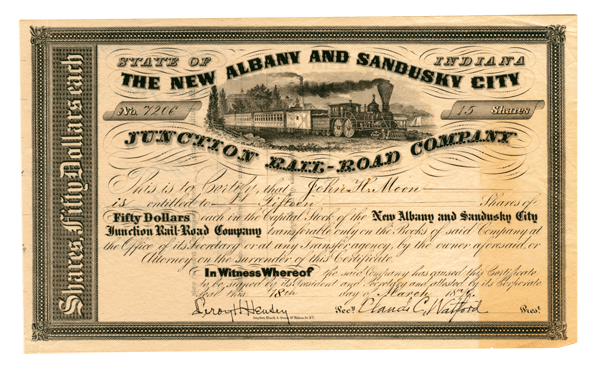 Shares Fifty Dollars each
STATE OF INDIANA
THE NEW ALBANY AND SANDUSKY CITY
No. 7206
15 Shares
JUNCTION RAIL-ROAD COMPANY
This is to Certify, that John H. Moon
is entitled to Fifteen Shares of
Fifty Dollars each in the Capital Stock of the New Albany and Sandusky City
Junction Rail-Road Company transferable only on the Books of said Company at
the Office of its Secretary or at any Transfer agency, by the owner aforesaid, or
Attorney on the surrender of this Certificate.
In Witness Whereof the said Company has caused this Certificate
to be signed by its President and Secretary and attested by its Corporate
this 18th day of March
Leroy H. Henley Secy. Pres.